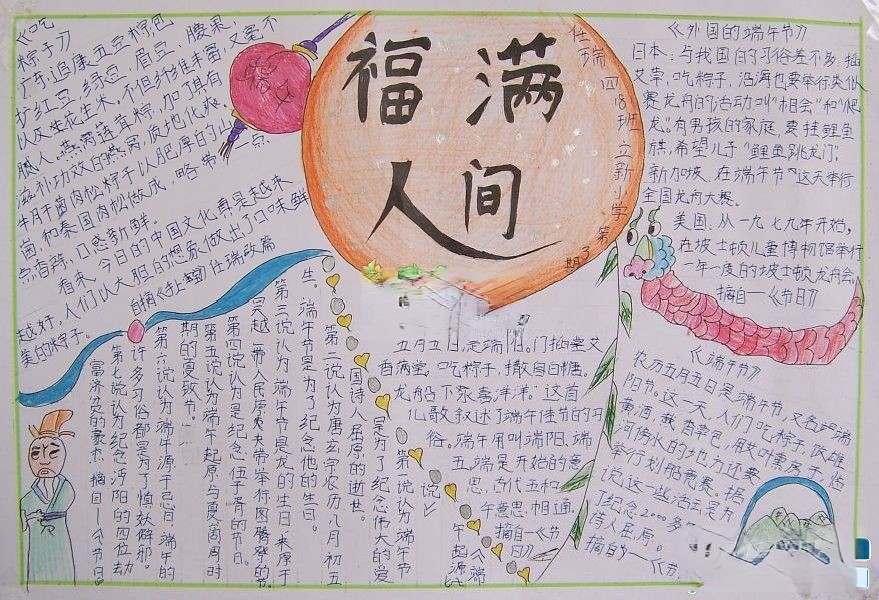 《吃
粽子》
广东追康五豆粽包
扩红豆、绿豆、眉豆、腰果,
以及生花生米。不但纤维丰富,又毫不
腻人。燕窝莲茸粽,加了具有
滋补功效的燕窝,质地化爽。
牛肝菌肉松粽子以肥厚的牛肝
菌和泰国肉松做成,略带一点
点香辣,口感新鲜。
看来,今日的中国文化真是越来
越好,人们以大胆的想象做出了口味鲜
美的粽子。
福满
人间
仕瑞
四(8)班
立新小学
第3期
《外国的端午节》
日本:与我国的习俗差不多,插
艾草,吃粽子,沿海也要举行类似
赛龙舟的活动叫“相会”和“爬
龙。”有男孩的家庭,要挂鲤鱼
旗,希望儿子“鲤鱼跳龙门”。
新加坡、在端午节这天举行
全国龙舟大赛。
美国:从一九七九年开始,
在坡士顿儿童博物馆举行
一年一度的坡士顿龙舟会。
摘自—《节日》
《端午节》
农历五月五日是端午节,又名端
阳节。这一天,人们吃粽子,饮雄
黄酒,戴香草包,用艾叶熏房子,临
河傍水的地方还要
举行划船竞赛。据
说这一些活动是为
了纪念2000多
诗人屈原。
摘自—《节
五月五日,是端阳。门插艾
香满堂。吃粽子,撒白糖。
龙船下水喜洋洋。”这首
儿歌叙述了端午佳节的习
俗。端午用叫端阳、端
五,端是开始的意
思,古代五和
午意思相通。
摘自—《节
日》
《端
午起源
说》
第一说认为端午节
是为了纪念伟大的爱
国诗人屈原的逝世。
第二说认为唐玄宗农历八月初五
生。端午节是为了纪念他的生日。
第三说认为,端午节是龙的生日,来源于
吴越一带人民原夷夹带举行图腾祭的节。
第四说认为是纪念伍子胥的节日。
第五说认为端午起原与夏、商、周时
期的夏致节。
第六说认为端午源于恶日,端午的
许多习俗都是为了慎妖辟邪。
第七说认为纪念浔阳的四位劫
富济贫的豪杰。摘自—《节日》